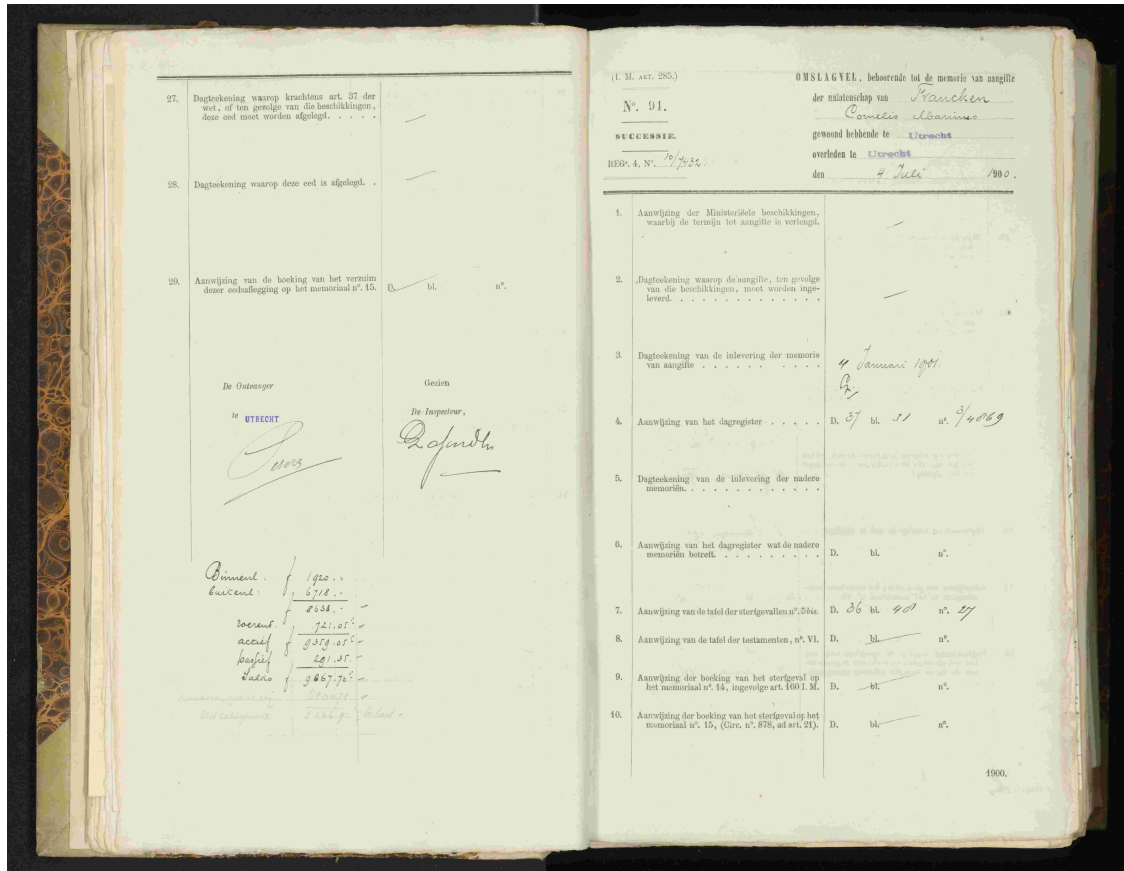 27. Dagteekening waarop krachtens art. 37 der
wet, of ten gevolge van die beschikkingen,
deze eed moet worden afgelegd. . . . . .
28. Dagteekening waarop deze eed is afgelegd. .
29. Aanwijzing van de boeking van het verzuim
dezer eedsaflegging op het memoriaal n°. 15. D. bl. n°.
De Ontvanger
te UTRECHT
Gezien
De Inspecteur,
Binnenl. f 1920.
buitenl. 6718.
f 8638.
roerend. 721.05
actief f 9359.05
passief 291.35
Saldo f 9067.70
(I. M. ART. 285.)
N°. 91.
SUCCESSIE.
REG^r. 4, N°. 10/7432
OMSLAGVEL, behoorende tot de memorie van aangifte
der nalatenschap van Francken
Cornelis Marinus
gewoond hebbende te Utrecht
overleden te Utrecht
den 4 Juli 1900.
1. Aanwijzing der Ministeriëele beschikkingen,
waarbij de termijn tot aangifte is verlengd.
2. Dagteekening waarop de aangifte, ten gevolge
van die beschikkingen, moet worden inge-
leverd. . . . . . . . . . . . . .
3. Dagteekening van de inlevering der memorie
van aangifte . . . . . . . . . . 4 Januari 1901.
4. Aanwijzing van het dagregister . . . . . D. 37 bl. 31 n°. 3/4869
5. Dagteekening van de inlevering der nadere
memoriën. . . . . . . . . . . . .
6. Aanwijzing van het dagregister wat de nadere
memoriën betreft. . . . . . . . . . D. bl. n°.
7. Aanwijzing van de tafel der sterfgevallen n°. 5bis. D. 36 bl. 48 n°. 27
8. Aanwijzing van de tafel der testamenten, n°. VI. D. bl. n°.
9. Aanwijzing der boeking van het sterfgeval op
het memoriaal n°. 14, ingevolge art. 160 I. M. D. bl. n°.
10. Aanwijzing der boeking van het sterfgeval op het
memoriaal n°. 15, (Circ. n°. 878, ad art. 21). D. bl. n°.
1900.